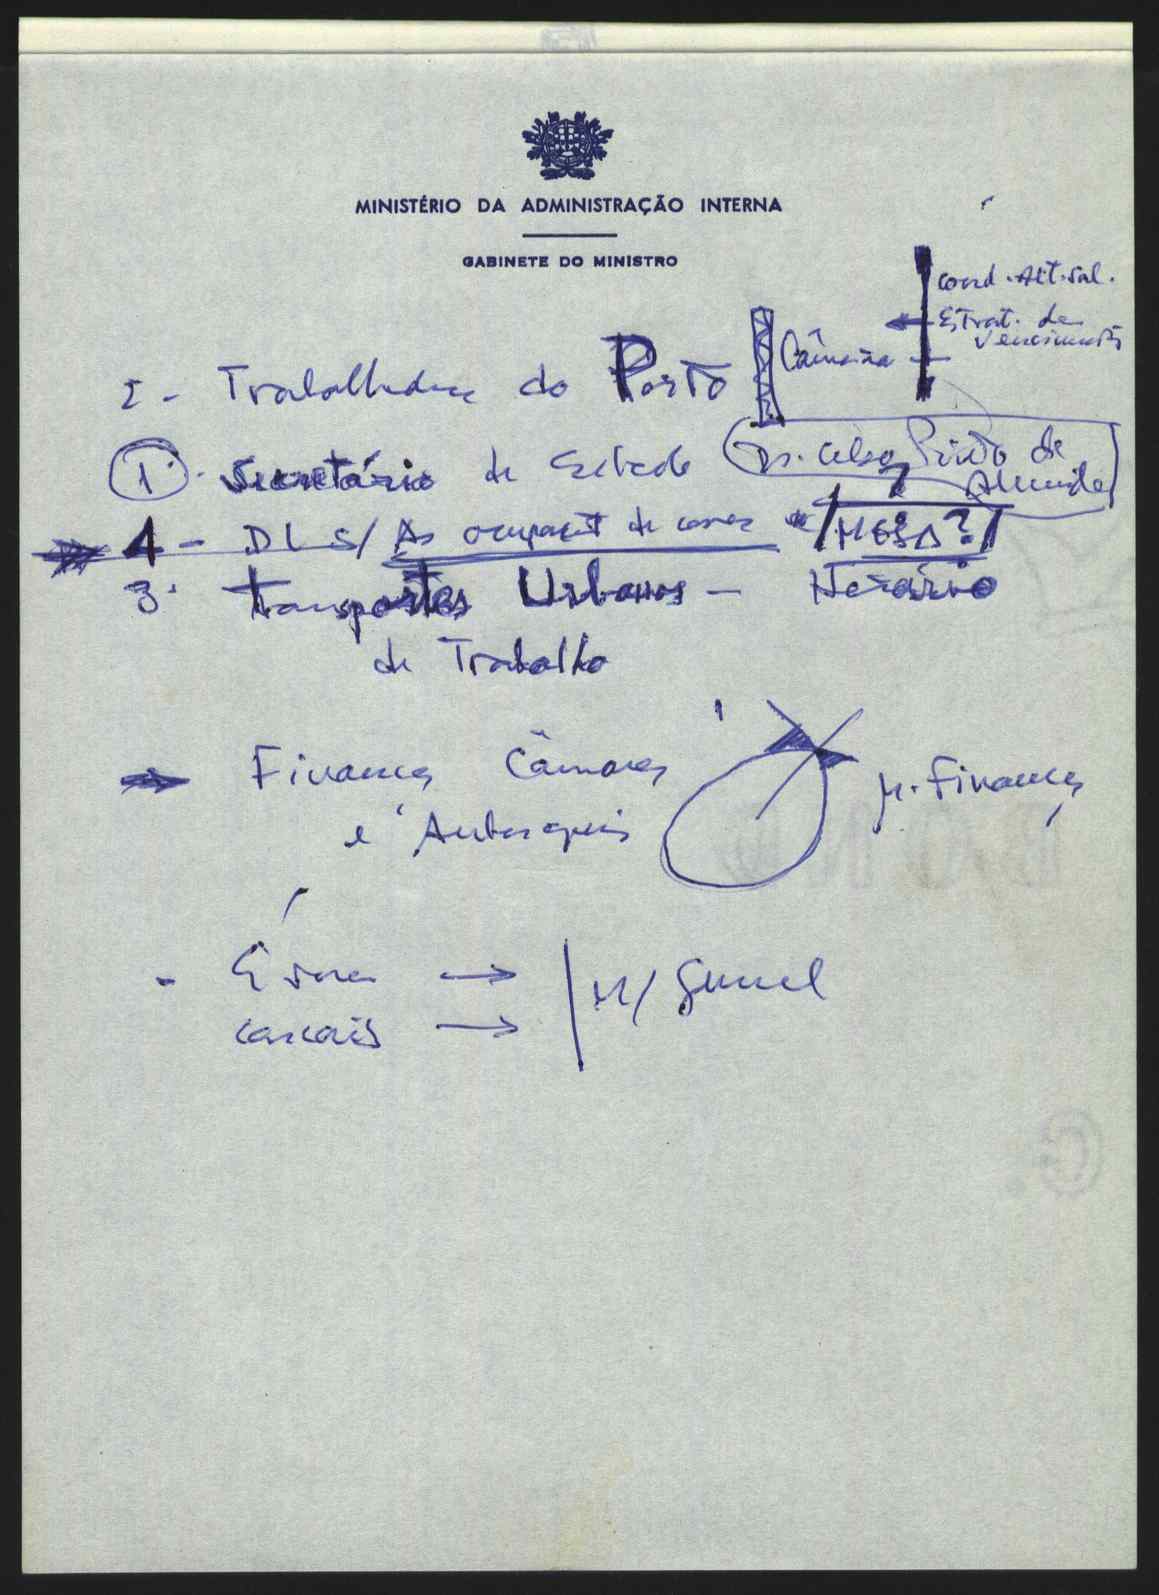 MINISTÉRIO DA ADMINISTRAÇÃO INTERNA
GABINETE DO MINISTRO
coord. Alt. Sal.
Estrat. de
Vencimentos
2 - Trabalhadores do Porto
Câmara
1. Secretário de Estado Dr. Celso Pinto de
Almeida
4 - DL S/ As ocupações de casas
3. Transportes Urbanos - Horário
de Trabalho
Finanças Câmaras
e Autarquias
M. Finanças
- Évora →
Cascais →